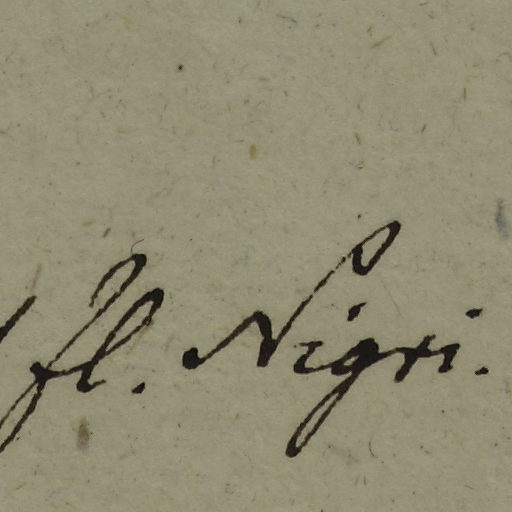 fl. Nigri.